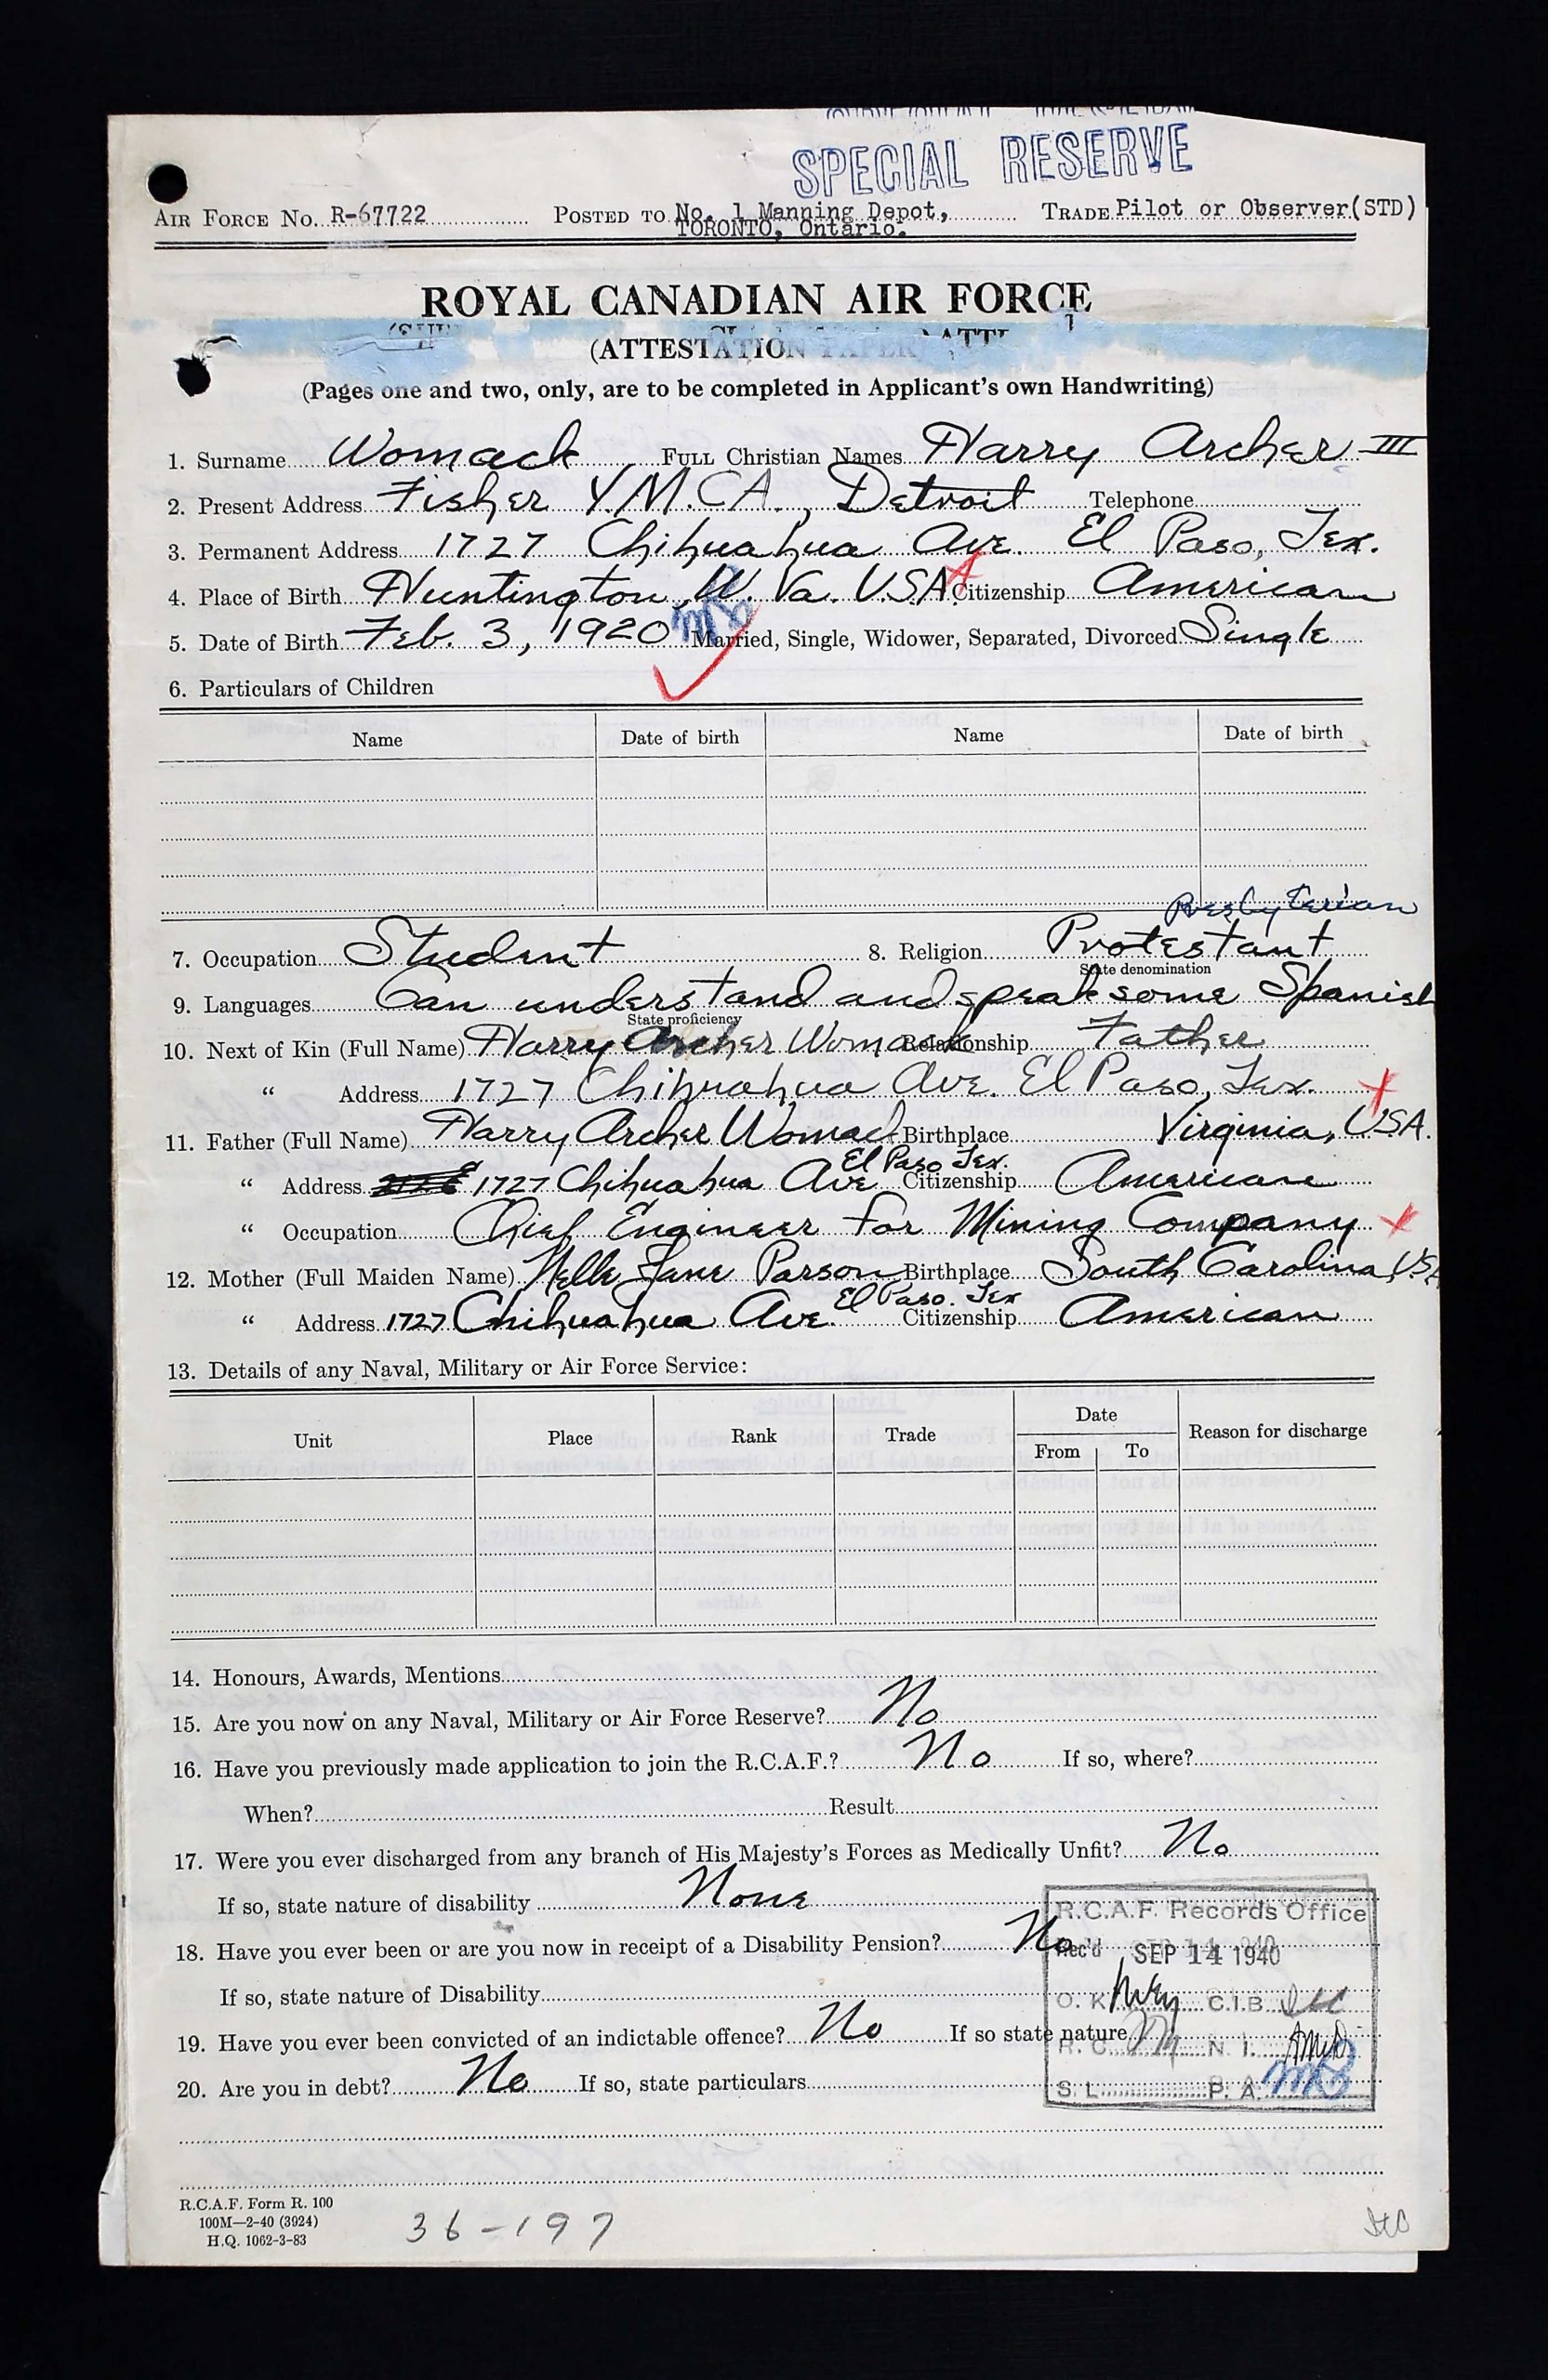 SPECIAL RESERVE
AIR FORCE NO. R-67722 POSTED TO No. 1 Manning Depot, TRADE Pilot or Observer(STD)
TORONTO, Ontario.
ROYAL CANADIAN AIR FORCE
(ATTESTATION PAPER)
(Pages one and two, only, are to be completed in Applicant's own Handwriting)
1. Surname Womack FULL Christian Names Harry Archer III
2. Present Address Fisher Y.M.C.A., Detroit Telephone
3. Permanent Address 1727 Chihuahua Ave. El Paso, Tex.
4. Place of Birth Huntington, W. Va. USA Citizenship American
5. Date of Birth Feb. 3, 1920 Married, Single, Widower, Separated, Divorced Single
6. Particulars of Children
Name Date of birth Name Date of birth
Presbyterian
7. Occupation Student 8. Religion Protestant
State denomination
9. Languages Can understand and speak some Spanish
State proficiency
10. Next of Kin (Full Name) Harry Archer Womack Relationship Father
" Address 1727 Chihuahua Ave. El Paso, Tex.
11. Father (Full Name) Harry Archer Womack Birthplace Virginia, USA.
El Paso Tex.
" Address 1727 Chihuahua Ave Citizenship American
" Occupation Chief Engineer for Mining Company
12. Mother (Full Maiden Name) Nelle Jane Parson Birthplace South Carolina, USA
El Paso. Tex
" Address 1727 Chihuahua Ave. Citizenship American
13. Details of any Naval, Military or Air Force Service:
Unit Place Rank Trade Date Reason for discharge
From To
14. Honours, Awards, Mentions
15. Are you now on any Naval, Military or Air Force Reserve? No
16. Have you previously made application to join the R.C.A.F.? No If so, where?
When? Result
17. Were you ever discharged from any branch of His Majesty's Forces as Medically Unfit? No
If so, state nature of disability None
R.C.A.F. Records Office
18. Have you ever been or are you now in receipt of a Disability Pension? No
Rec'd SEP 14 1940
If so, state nature of Disability
O. K. C.I.B.
19. Have you ever been convicted of an indictable offence? No If so state nature
R. C. N. I.
20. Are you in debt? No If so, state particulars
S. L. P. A. MB
R.C.A.F. Form R. 100
100M—2-40 (3924)
H.Q. 1062-3-83
36-197